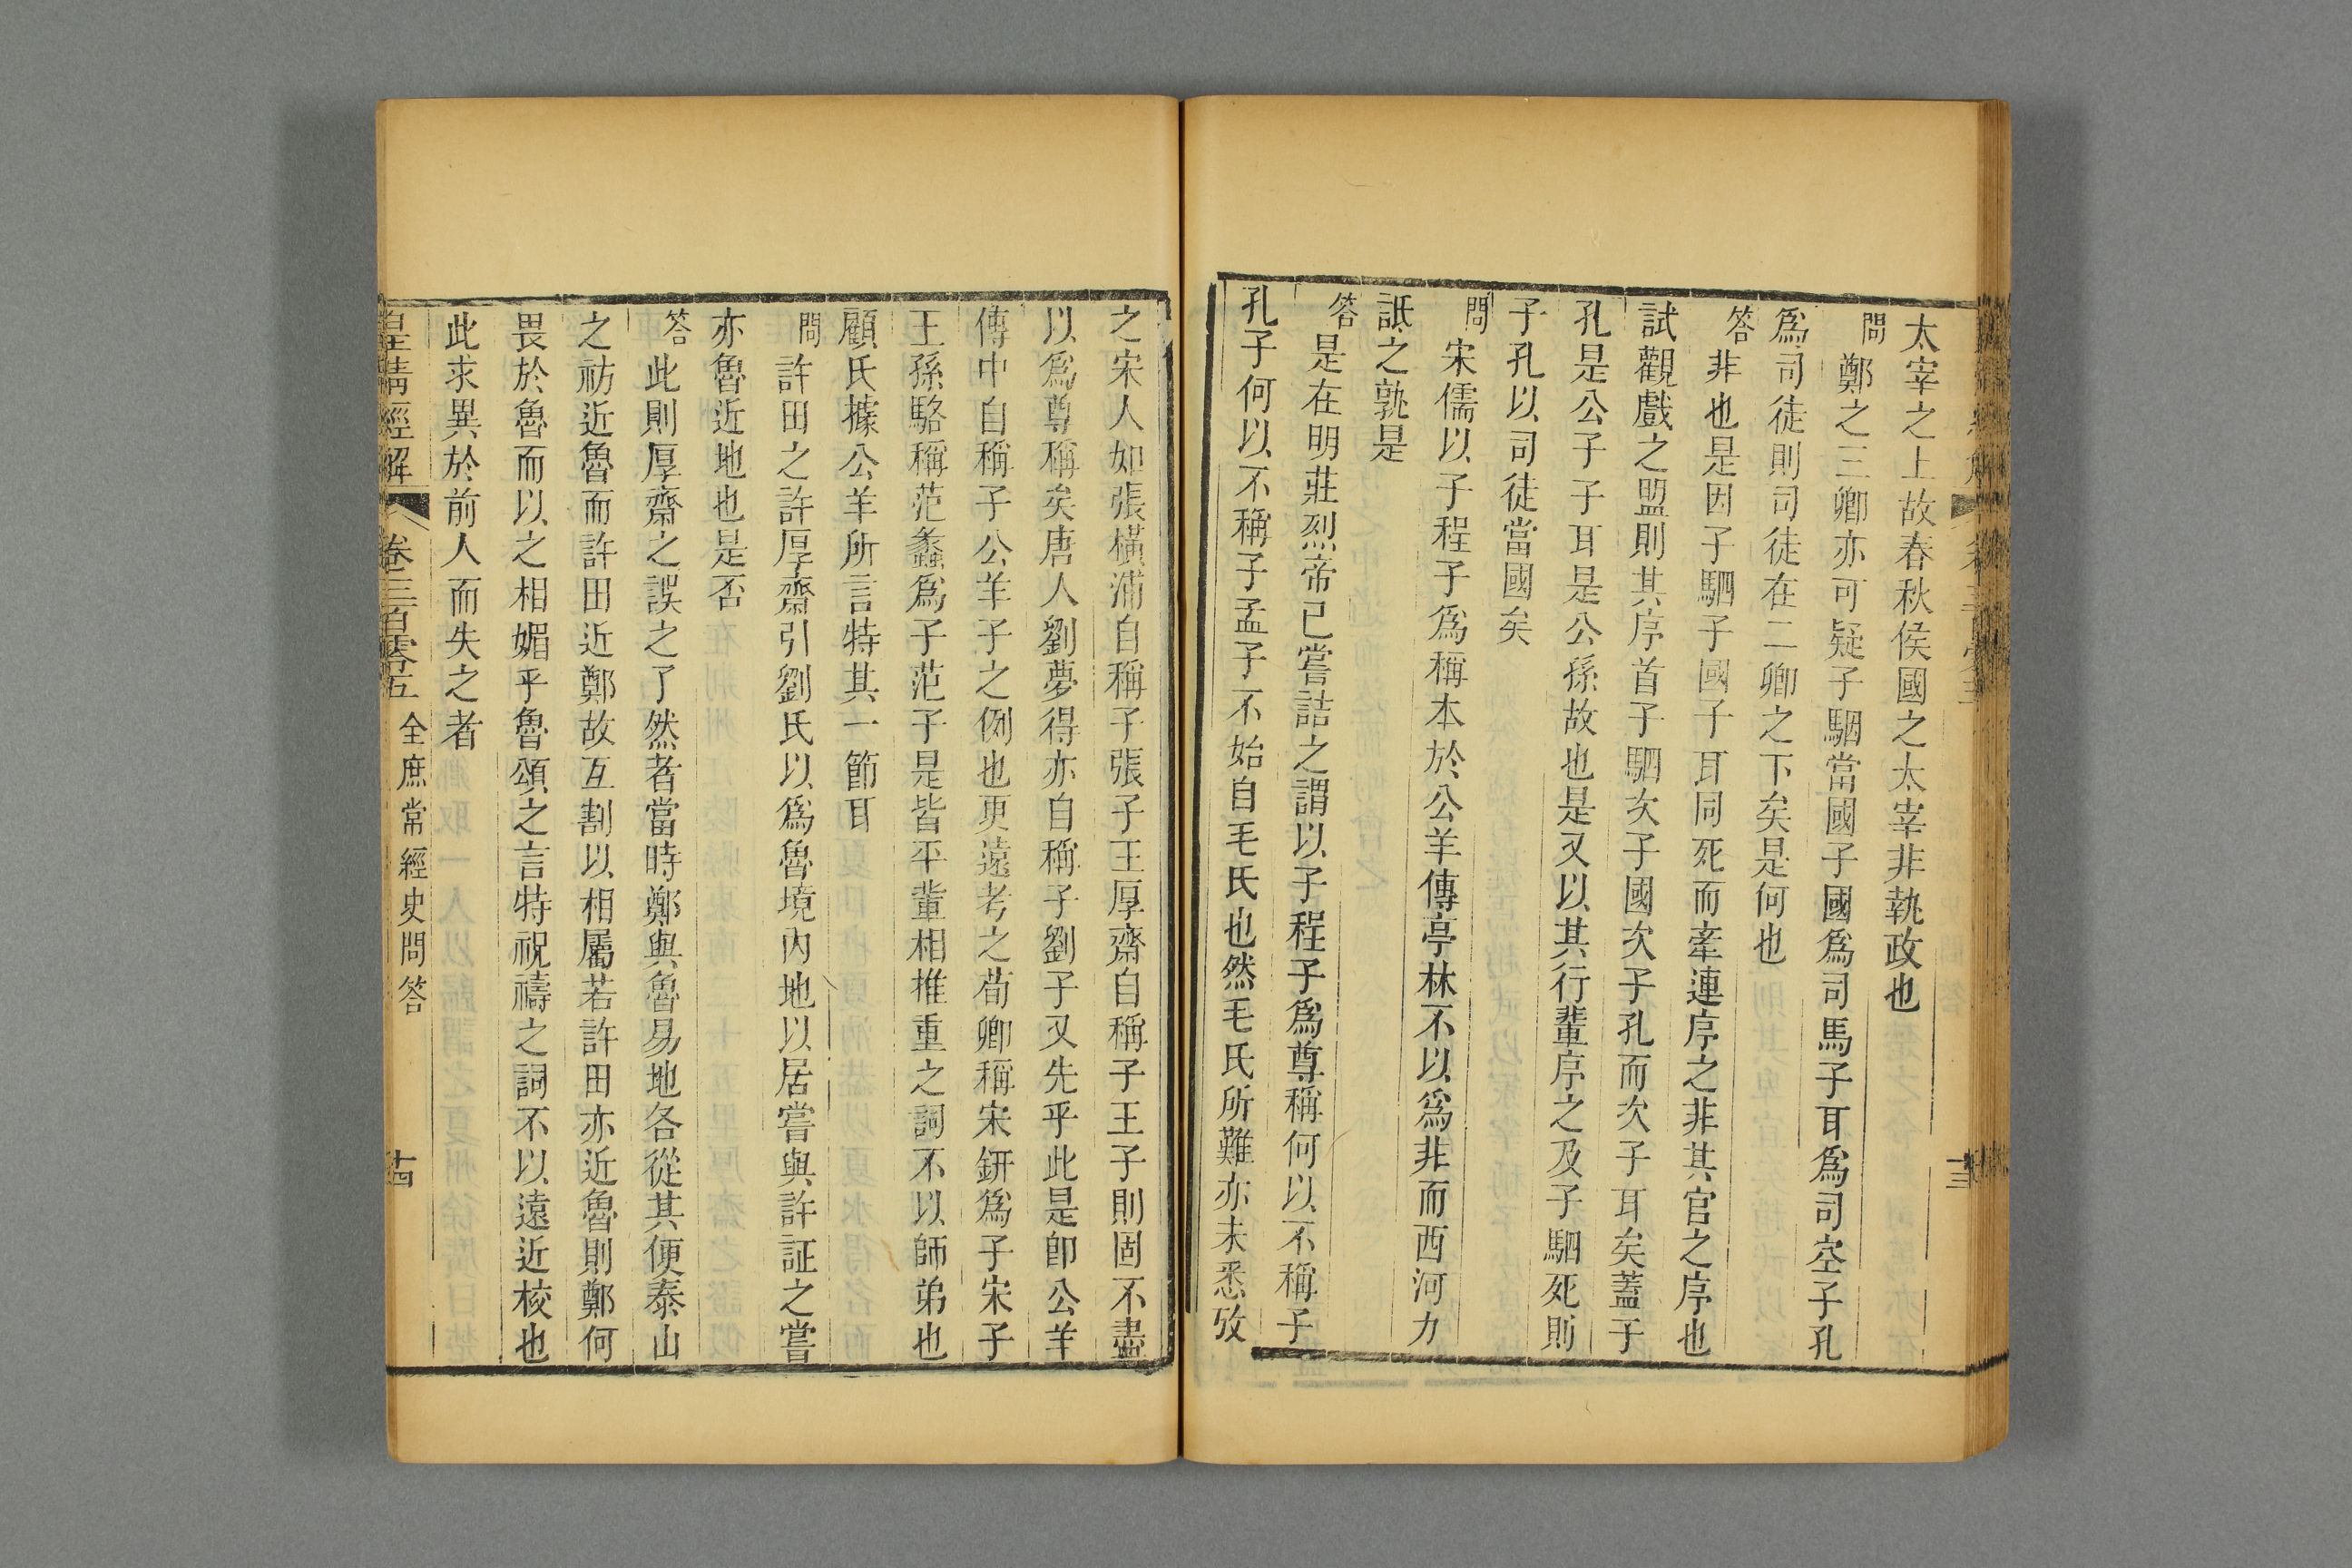 太宰之上故春秋侯國之太宰非執政也
問鄭之三卿亦可疑子駟當國子國爲司馬子耳爲司空子孔
爲司徒則司徒在二卿之下矣是何也
答非也是因子駟子國子耳同死而牽連序之非其官之序也
試觀戲之盟則其序首子駟次子國次子孔而次子耳矣蓋子
孔是公子子耳是公孫故也是又以其行輩序之及子駟死則
子孔以司徒當國矣
問宋儒以子程子爲稱本於公羊傳亭林不以爲非而西河力
詆之孰是
答是在明莊烈帝已嘗詰之謂以子程子爲尊稱何以不稱子
孔子何以不稱子孟子不始自毛氏也然毛氏所難亦未悉攷
之宋人如張橫浦自稱子張子王厚齋自稱子王子則固不盡
以爲尊稱矣唐人劉夢得亦自稱子劉子又先乎此是卽公羊
傳中自稱子公羊子之例也更遠考之荀卿稱宋鈃爲子宋子
王孫駱稱范蠡爲子范子是皆平輩相推重之詞不以師弟也
顧氏據公羊所言特其一節耳
問許田之許厚齋引劉氏以爲魯境內地以居嘗與許証之嘗
亦魯近地也是否
答此則厚齋之誤之了然者當時鄭與魯易地各從其便泰山
之祊近魯而許田近鄭故互割以相屬若許田亦近魯則鄭何
畏於魯而以之相媚乎魯頌之言特祝禱之詞不以遠近核也
此求異於前人而失之者
皇清經解 卷三百零五 全庶常經史問答 十四